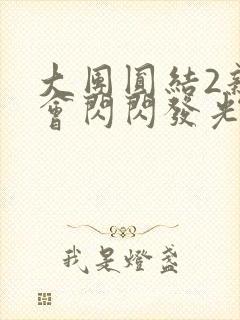 大團圓結2
會閃閃發光
我是燈盞